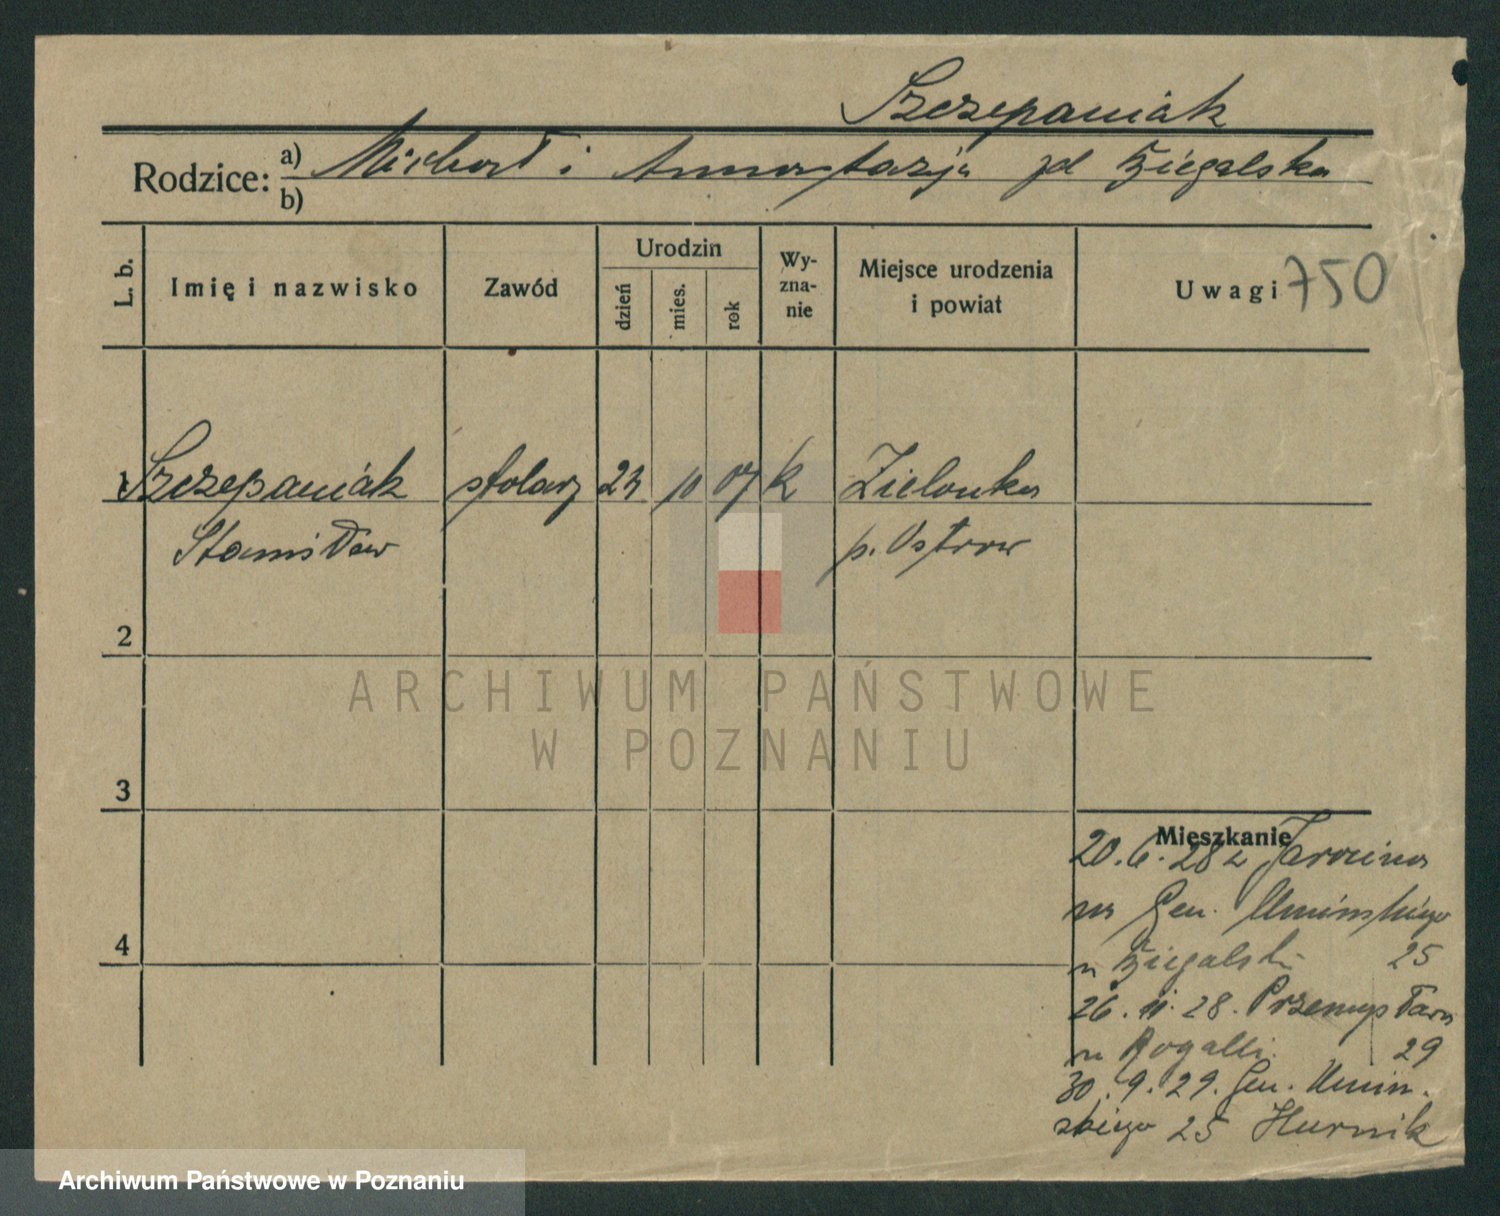 Szczepaniak
Rodzice: a) Michał i Annastazja zd Fziegalska
b)
L. b.
Imię i nazwisko
Zawód
Urodzin
dzień
mies.
rok
Wy-
zna-
nie
Miejsce urodzenia
i powiat
Uwagi 750
1 Szczepaniak stolarz 23 10 07 k Zielonka
Stanisław p. Ostrow
2
3
4
Mieszkanie
20. 6. 28 z Jarocina
na Gen. Umińskiego
25
26. 11. 28. Przemysława
u Rogalli 29
30. 9. 29. Gen. Umiń-
skiego 25 Hurnik
ARCHIWUM PAŃSTWOWE
W POZNANIU
Archiwum Państwowe w Poznaniu